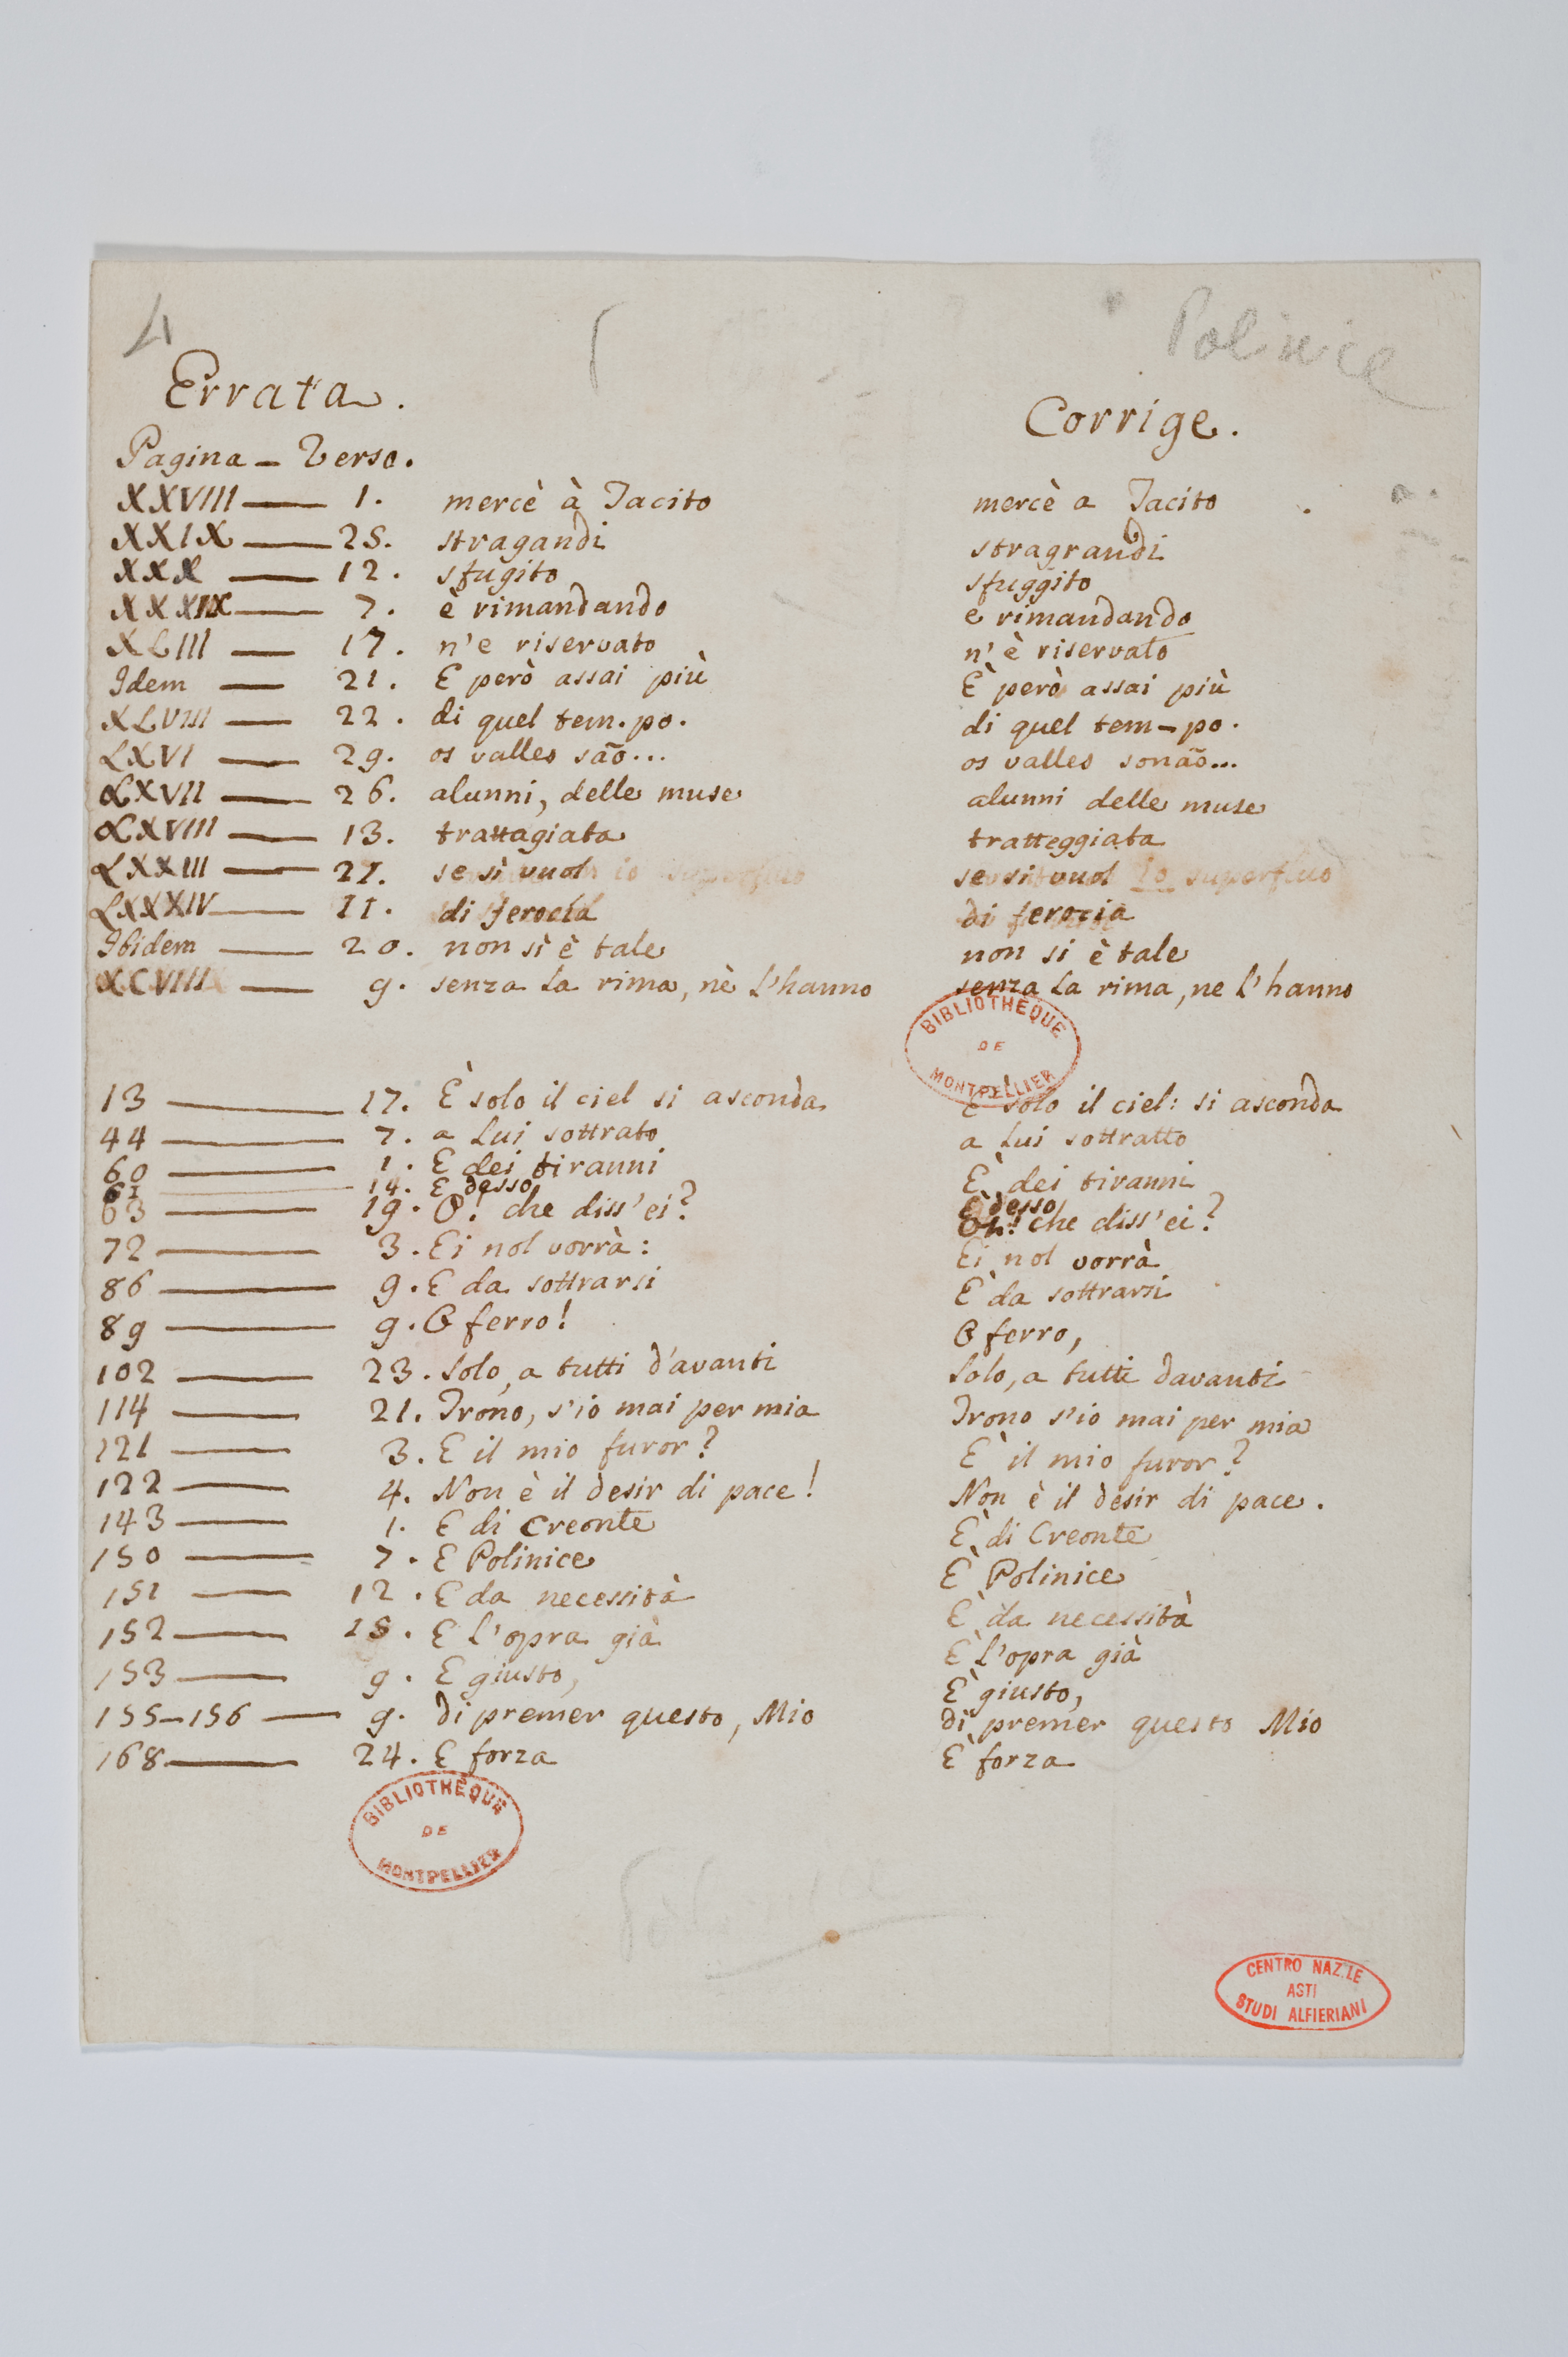 4
Polinice
Errata.
Corrige.
Pagina – Verso.
XXVIII — 1. mercè à Tacito mercè a Tacito
XXIX — 25. stragandi stragrandi
XXX — 12. sfugito sfuggito
XXXIX — 7. è rimandando e rimandando
XLIII — 17. n'e riservato n'è riservato
Idem — 21. E però assai più È però assai più
XLVIII — 22. di quel tem.po. di quel tem-po.
LXVI — 29. os valles são... os valles sonão...
LXVII — 26. alunni, delle muse alunni delle muse
LXVIII — 13. trattagiata tratteggiata
LXXIII — 27. se sì vuol se si vuol lo superfluo
LXXXIV — 11. di ferocia di ferocia
Ibidem — 20. non sì è tale non si è tale
XCVIII — 9. senza la rima, nè l'hanno senza la rima, ne l'hanno
BIBLIOTHÈQUE
DE
MONTPELLIER
13 — 17. È solo il ciel si asconda È solo il ciel: si asconda
44 — 7. a lui sottrato a lui sottratto
60 — 1. E dei tiranni È dei tiranni
61 — 14. E desso È desso
63 — 19. O! che diss'ei? Oh! che diss'ei?
72 — 3. Ei nol vorrà: Ei nol vorrà
86 — 9. E da sottrarsi È da sottrarsi
89 — 9. O ferro! O ferro,
102 — 23. Solo, a tutti d'avanti Solo, a tutti davanti
114 — 21. Trono, s'io mai per mia Trono s'io mai per mia
121 — 3. E il mio furor? È il mio furor?
122 — 4. Non è il desir di pace! Non è il desir di pace.
143 — 1. E di Creonte È di Creonte
150 — 7. E Polinice È Polinice
151 — 12. E da necessità È da necessità
152 — 15. E l'opra già È l'opra già
153 — 9. E giusto, È giusto,
155–156 — 9. di premer questo, Mio di premer questo Mio
168 — 24. E forza È forza
BIBLIOTHÈQUE
DE
MONTPELLIER
CENTRO NAZ.LE
ASTI
STUDI ALFIERIANI